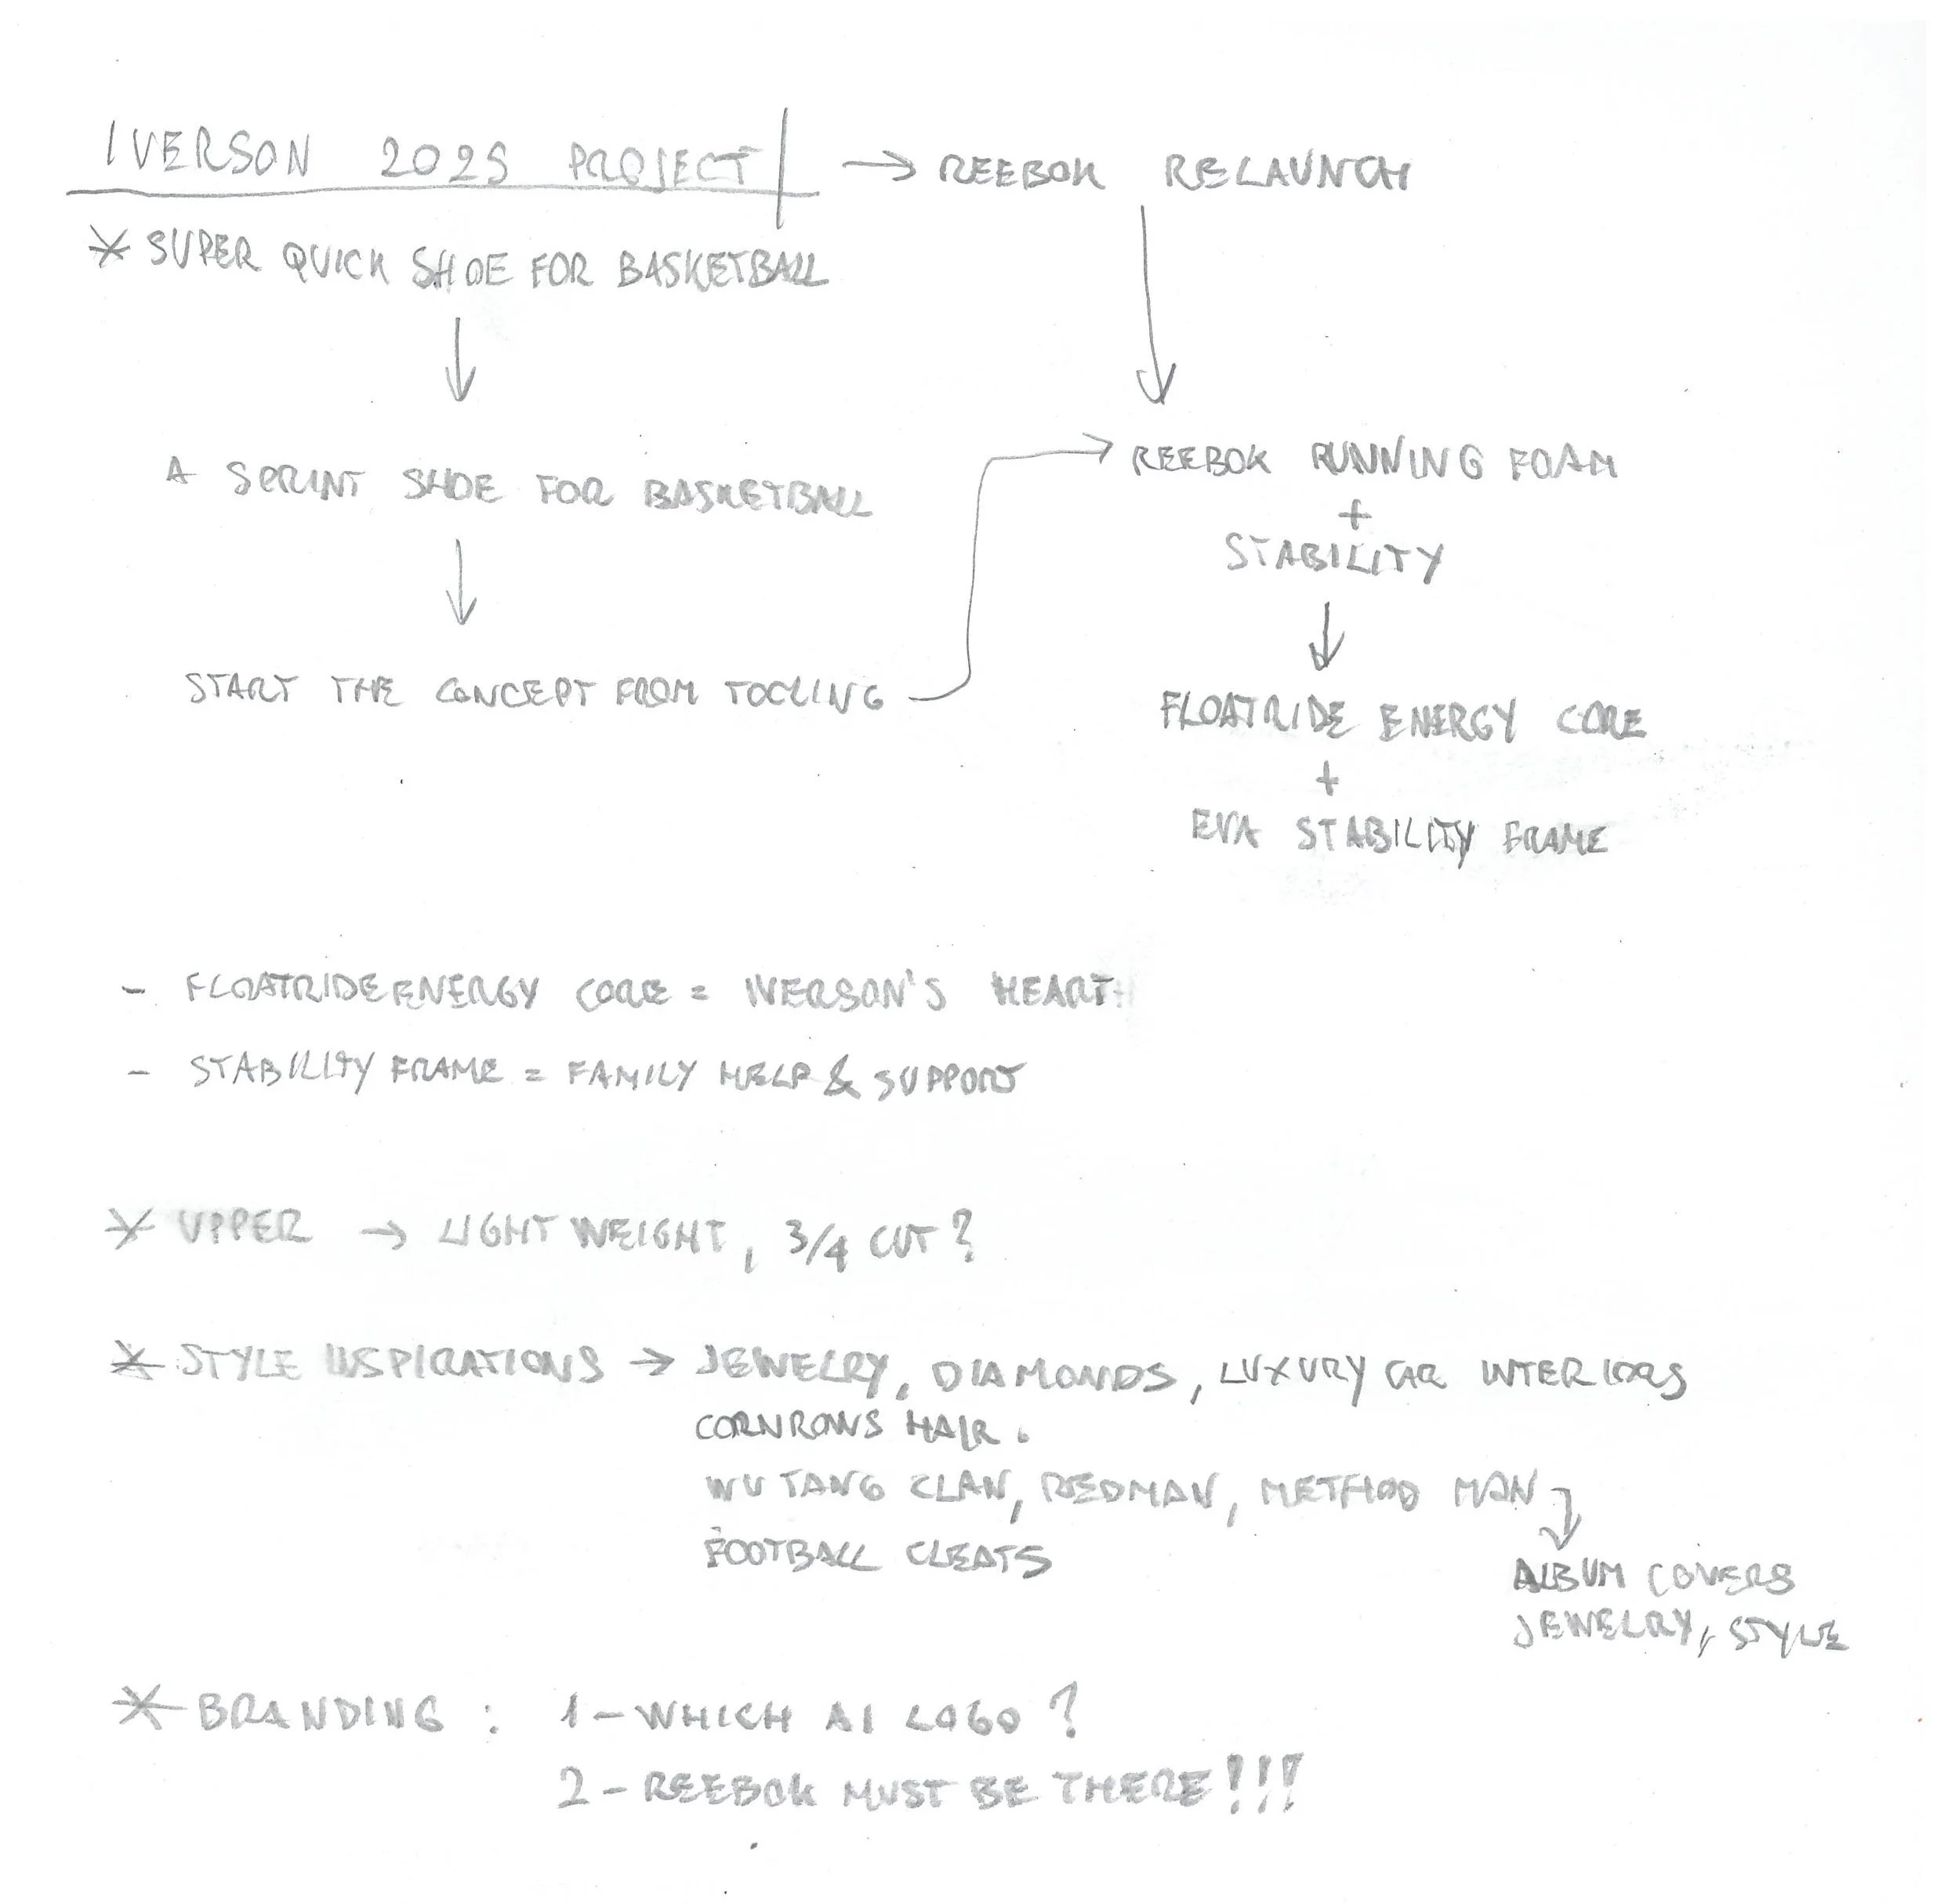 IVERSON 2025 PROJECT → REEBOK RELAUNCH
* SUPER QUICK SHOE FOR BASKETBALL
A SPRINT SHOE FOR BASKETBALL
START THE CONCEPT FROM TOOLING
REEBOK RUNNING FOAM
+
STABILITY
FLOATRIDE ENERGY CORE
+
EVA STABILITY FRAME
- FLOATRIDE ENERGY CORE = IVERSON'S HEART.
- STABILITY FRAME = FAMILY HELP & SUPPORT
* UPPER → LIGHTWEIGHT, 3/4 CUT?
* STYLE USPIRATIONS → JEWELRY, DIAMONDS, LUXURY CAR INTERIORS
CORNROWS HAIR.
WU TANG CLAN, REDMAN, METHOD MAN
FOOTBALL CLEATS
ALBUM COVERS
JEWELRY, STYLE
* BRANDING : 1 - WHICH AI LOGO?
2 - REEBOK MUST BE THERE!!!